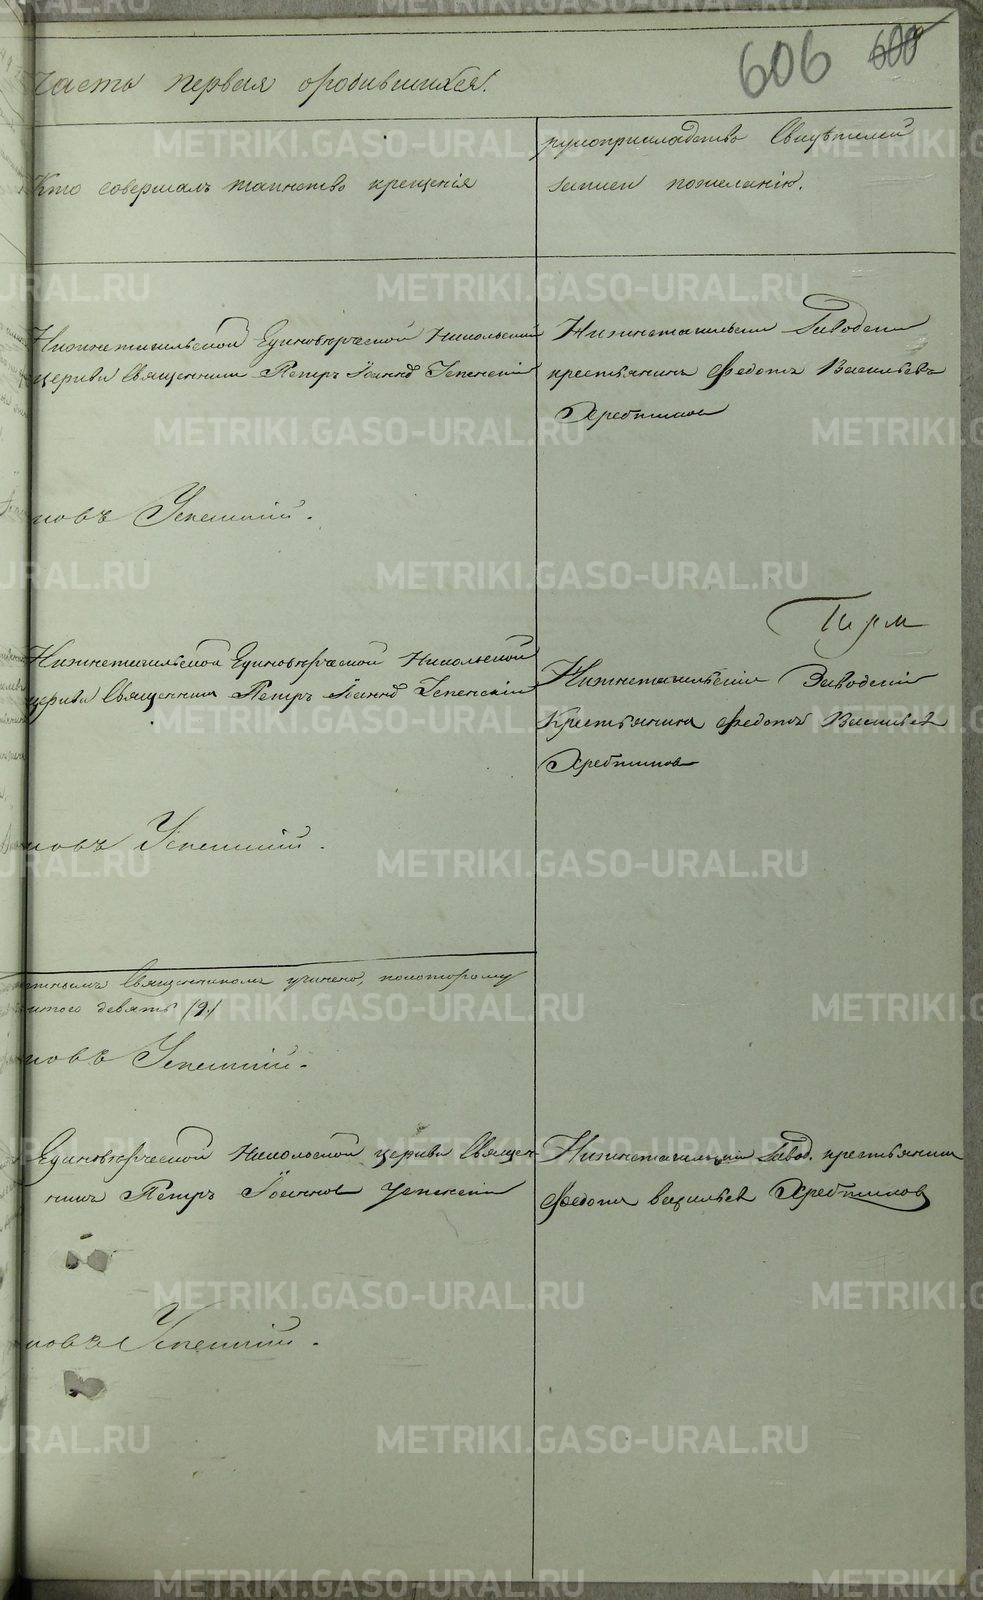 606 600
Часть первая о родившихся.
Кто совершалъ таинство крещенія
рукоприкладство свидѣтелей
записи по желанію.
Нижнетагильской Единовѣрческой Никольской
церкви Священникъ Петръ Іоанновъ Успенскій
Нижнетагильскій Заводскій
крестьянинъ Федотъ Васильевъ
Хребтиковъ
новъ Успенскій.
Нижнетагильской Единовѣрческой Никольской
церкви Священникъ Петръ Іоанновъ Успенскій
Нижнетагильскій Заводскій
Крестьянинъ Федотъ Васильевъ
Хребтиковъ
новъ Успенскій.
Священникомъ учинено, по которому
итого девять (9)
новъ Успенскій.
Единовѣрческой Никольской церкви Священ-
никъ Петръ Іоанновъ Успенскій
Нижнетагильскій Завод. крестьянинъ
Федотъ Васильевъ Хребтиковъ
новъ Успенскій.
METRIKI.GASO-URAL.RU